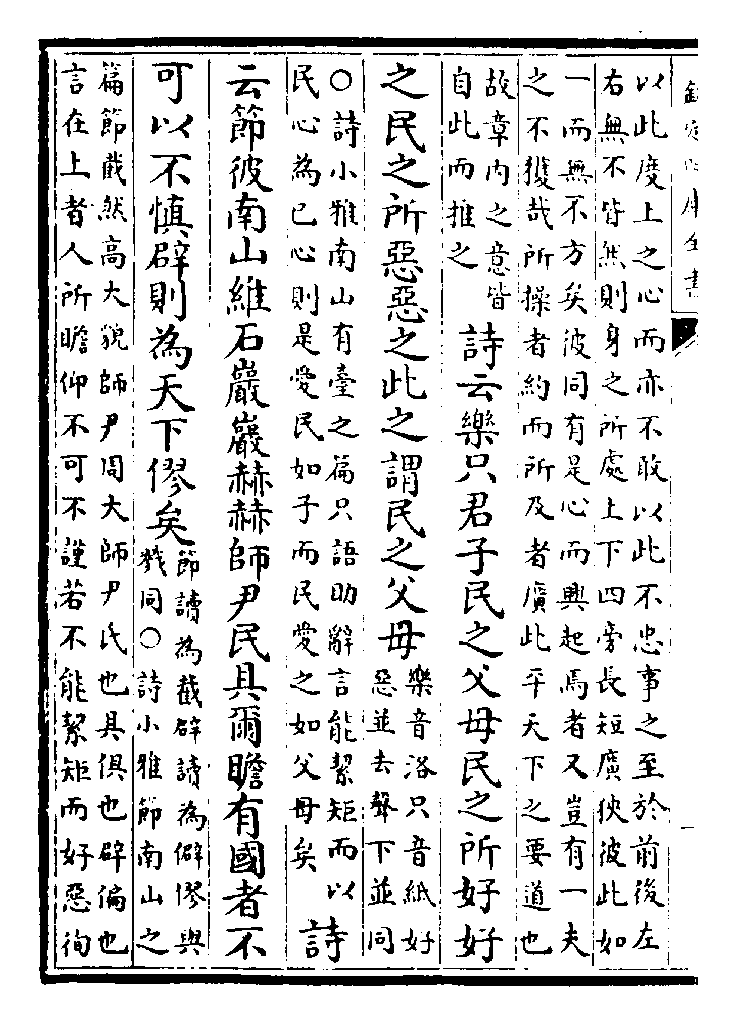 欽定四庫全書
以此度上之心而亦不敢以此不忠事之至於前後左
右無不皆然則身之所處上下四旁長短廣狹彼此如
一而無不方矣彼同有是心而興起焉者又豈有一夫
之不獲哉所操者約而所及者廣此平天下之要道也
故章内之意皆
自此而推之
詩云樂只君子民之父母民之所好好
之民之所惡惡之此之謂民之父母
樂音洛只音紙好
惡並去聲下並同
○詩小雅南山有臺之篇只語助辭言能絜矩而以
民心為已心則是愛民如子而民愛之如父母矣
詩
云節彼南山維石巖巖赫赫師尹民具爾瞻有國者不
可以不慎辟則為天下僇矣
節讀為截辟讀為僻僇與
戮同○詩小雅節南山之
篇節截然高大貌師尹周大師尹氏也具俱也辟偏也
言在上者人所瞻仰不可不謹若不能絜矩而好惡徇